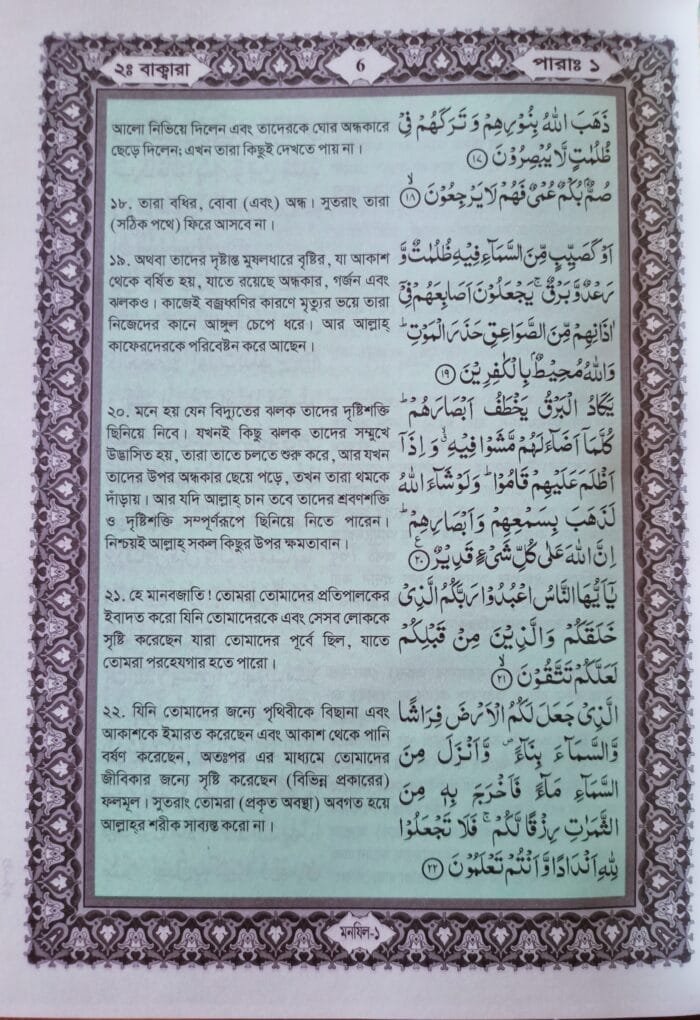 ২ঃ বাক্বারা
6
পারাঃ ১
আলো নিভিয়ে দিলেন এবং তাদেরকে ঘোর অন্ধকারে
ছেড়ে দিলেন; এখন তারা কিছুই দেখতে পায় না।
১৮. তারা বধির, বোবা (এবং) অন্ধ। সুতরাং তারা
(সঠিক পথে) ফিরে আসবে না।
১৯. অথবা তাদের দৃষ্টান্ত মুষলধারে বৃষ্টির, যা আকাশ
থেকে বর্ষিত হয়, যাতে রয়েছে অন্ধকার, গর্জন এবং
ঝলকও। কাজেই বজ্রধ্বণির কারণে মৃত্যুর ভয়ে তারা
নিজেদের কানে আঙ্গুল চেপে ধরে। আর আল্লাহ্
কাফেরদেরকে পরিবেষ্টন করে আছেন।
২০. মনে হয় যেন বিদ্যুতের ঝলক তাদের দৃষ্টিশক্তি
ছিনিয়ে নিবে। যখনই কিছু ঝলক তাদের সম্মুখে
উদ্ভাসিত হয়, তারা তাতে চলতে শুরু করে, আর যখন
তাদের উপর অন্ধকার ছেয়ে পড়ে, তখন তারা থমকে
দাঁড়ায়। আর যদি আল্লাহ্ চান তবে তাদের শ্রবণশক্তি
ও দৃষ্টিশক্তি সম্পূর্ণরূপে ছিনিয়ে নিতে পারেন।
নিশ্চয়ই আল্লাহ্ সকল কিছুর উপর ক্ষমতাবান।
২১. হে মানবজাতি! তোমরা তোমাদের প্রতিপালকের
ইবাদত করো যিনি তোমাদেরকে এবং সেসব লোককে
সৃষ্টি করেছেন যারা তোমাদের পূর্বে ছিল, যাতে
তোমরা পরহেযগার হতে পারো।
২২. যিনি তোমাদের জন্যে পৃথিবীকে বিছানা এবং
আকাশকে ইমারত করেছেন এবং আকাশ থেকে পানি
বর্ষণ করেছেন, অতঃপর এর মাধ্যমে তোমাদের
জীবিকার জন্যে সৃষ্টি করেছেন (বিভিন্ন প্রকারের)
ফলমূল। সুতরাং তোমরা (প্রকৃত অবস্থা) অবগত হয়ে
আল্লাহ্‌র শরীক সাব্যস্ত করো না।
ذَهَبَ اللّٰهُ بِنُوْرِهِمْ وَتَرَكَهُمْ فِیْ
ظُلُمٰتٍ لَّا يُبْصِرُوْنَ ﴿۱۷﴾
صُمٌّۢ بُكْمٌ عُمْیٌ فَهُمْ لَا يَرْجِعُوْنَ ۙ﴿۱۸﴾
اَوْ كَصَيِّبٍ مِّنَ السَّمَآءِ فِيْهِ ظُلُمٰتٌ وَّ
رَعْدٌ وَّبَرْقٌ ۚ يَجْعَلُوْنَ اَصَابِعَهُمْ فِیْۤ
اٰذَانِهِمْ مِّنَ الصَّوَاعِقِ حَذَرَ الْمَوْتِ ؕ
وَاللّٰهُ مُحِيْطٌۢ بِالْكٰفِرِيْنَ ﴿۱۹﴾
يَكَادُ الْبَرْقُ يَخْطَفُ اَبْصَارَهُمْ ؕ
كُلَّمَاۤ اَضَآءَ لَهُمْ مَّشَوْا فِيْهِ ۙ وَاِذَاۤ
اَظْلَمَ عَلَيْهِمْ قَامُوْا ؕ وَلَوْ شَآءَ اللّٰهُ
لَذَهَبَ بِسَمْعِهِمْ وَاَبْصَارِهِمْ ؕ
اِنَّ اللّٰهَ عَلٰى كُلِّ شَیْءٍ قَدِيْرٌ ﴿۲۰﴾ ع
يٰۤاَيُّهَا النَّاسُ اعْبُدُوْا رَبَّكُمُ الَّذِیْ
خَلَقَكُمْ وَالَّذِيْنَ مِنْ قَبْلِكُمْ
لَعَلَّكُمْ تَتَّقُوْنَ ۙ﴿۲۱﴾
الَّذِیْ جَعَلَ لَكُمُ الْاَرْضَ فِرَاشًا
وَّالسَّمَآءَ بِنَآءً ۪ وَّاَنْزَلَ مِنَ
السَّمَآءِ مَآءً فَاَخْرَجَ بِهٖ مِنَ
الثَّمَرٰتِ رِزْقًا لَّكُمْ ۚ فَلَا تَجْعَلُوْا
لِلّٰهِ اَنْدَادًا وَّاَنْتُمْ تَعْلَمُوْنَ ﴿۲۲﴾
মনযিল-১